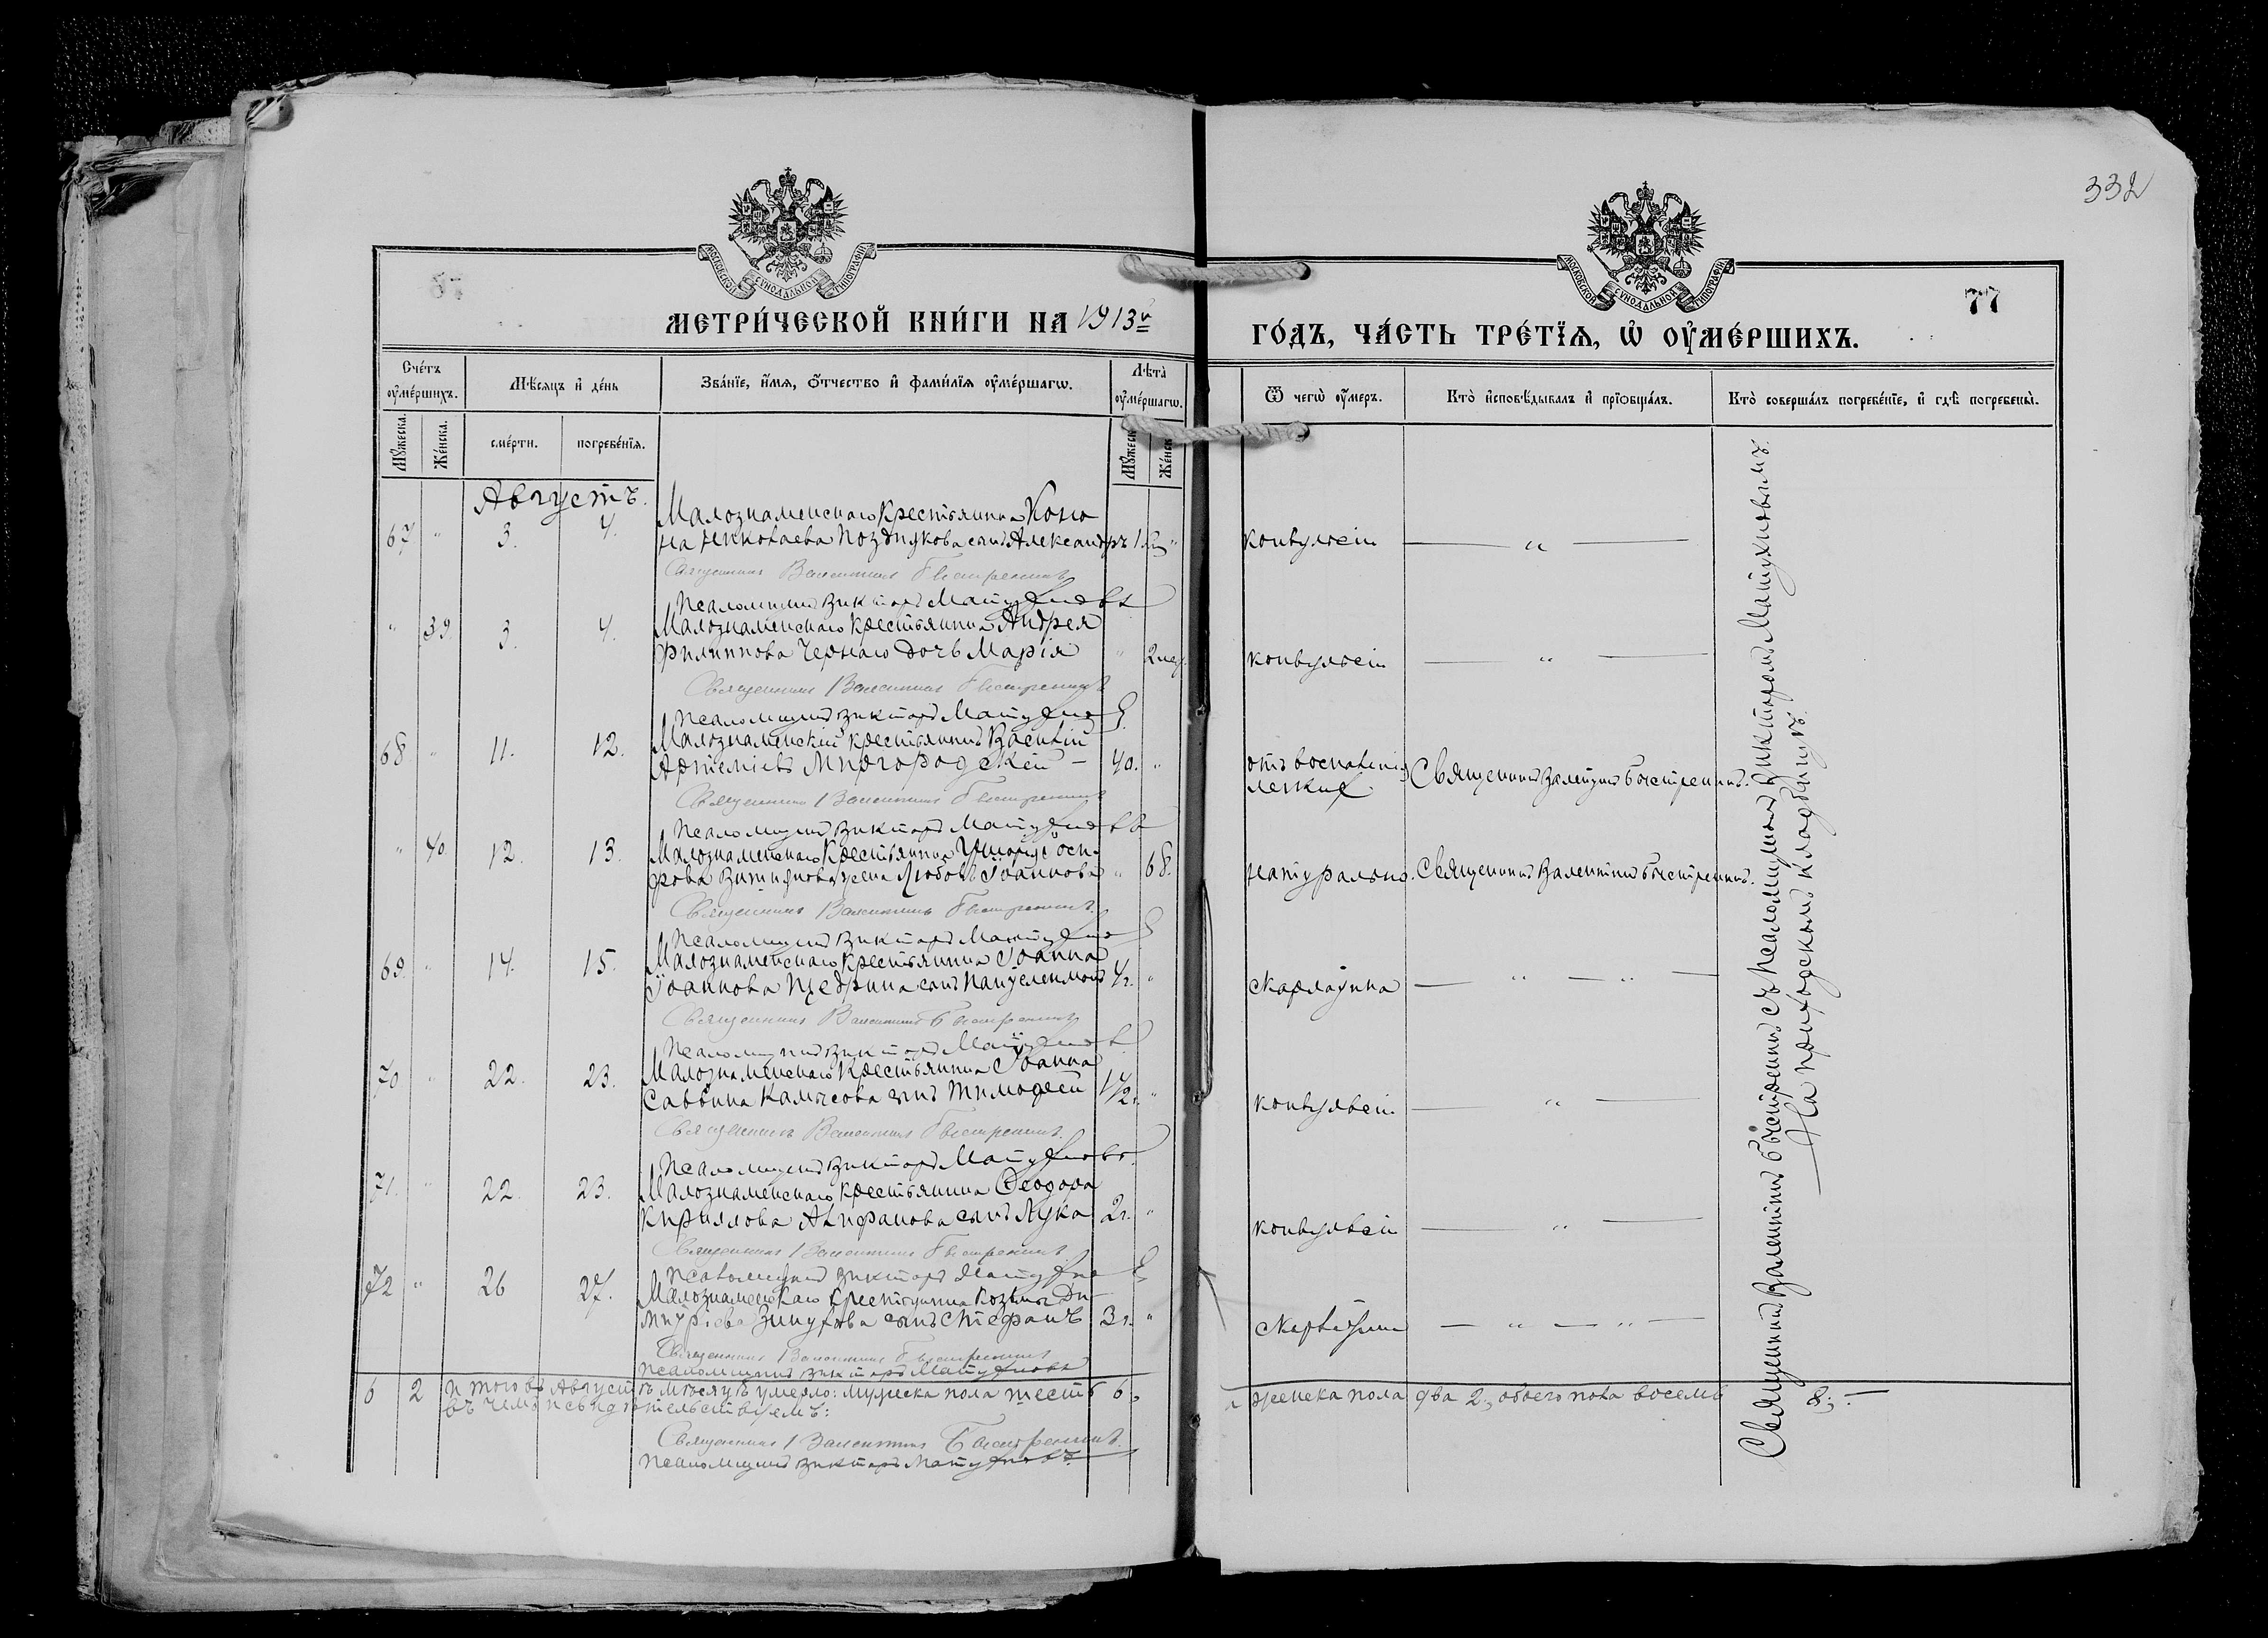 332
77
МОСКОВСКОЙ СѴНОДАЛЬНОЙ ТИПОГРАФІИ
МОСКОВСКОЙ СѴНОДАЛЬНОЙ ТИПОГРАФІИ
МЕТРИ́ЧЕСКОЙ КНИ́ГИ НА 1913й
ГО́ДЪ, ЧА́СТЬ ТРЕ́ТЇѦ, Ѡ҆ ОУ҆МЕ́РШИХЪ.
Сче́тъ оу҆ме́ршихъ.
Мѣ́сяцъ и҆ де́нь
Зва́нїе, и҆́мя, ѻ҆́тчество и҆ фами́лїя оу҆ме́ршагѡ.
Лѣ́та оу҆ме́ршагѡ.
Ѿ чегѡ̀ оу҆́меръ.
Кто̀ и҆сповѣ́дывалъ и҆ прїѡбща́лъ.
Кто̀ соверша́лъ погребе́нїе, и҆ гдѣ̀ погребены̀.
Мꙋ́жеска.
Же́нска.
сме́рти.
погребе́нїя.
Мꙋ́жеск
Же́нск
Августъ.
67 " 3. 4. Малознаменскаго Крестьянина Коно
на Николаева Позднякова сынъ Александръ "
конвульсіи — " —
Священникъ Валентинъ Быстренинъ
Псаломщикъ Викторъ Матухновъ
" 39. 3. 4. Малознаменскаго крестьянина Андрея
Филиппова Чернаго дочь Марія " 2 нед.
конвульсіи — " —
Священникъ Валентинъ Быстренинъ
Псаломщикъ Викторъ Матухновъ
68 " 11. 12. Малознаменскій крестьянинъ Василій
Артеміевъ Миргородскій — 40. "
отъ воспаленія
легкихъ Священникъ Валентинъ Быстренинъ.
Священникъ Валентинъ Быстренинъ
Псаломщикъ Викторъ Матухновъ
" 40 12. 13. Малознаменскаго Крестьянина Оси-
фова жена Любовь Іоаннова " 68.
натурально. Священникъ Валентинъ Быстренинъ.
Священникъ Валентинъ Быстренинъ.
Псаломщикъ Викторъ Матухновъ
69. " 14. 15. Малознаменскаго Крестьянина Іоанна
Іоаннова Щедрина сынъ Пантелеимонъ 4г. "
Скарлатина — " — " —
Священникъ Валентинъ Быстренинъ
Псаломщикъ Викторъ Матухновъ
70 " 22. 23. Малознаменскаго Крестьянина Іоанна
Саввина Камысова сынъ Тимофей 1 1/2г. "
конвульсіи — " —
Священникъ Валентинъ Быстренинъ.
Псаломщикъ Викторъ Матухновъ.
71. " 22. 23. Малознаменскаго крестьянина Ѳеодора
Кириллова Анфанова сынъ Лука 2г. "
конвульсіи — " —
Священникъ Валентинъ Быстренинъ.
Псаломщикъ Викторъ Матухновъ
72 " 26 27. Малознаменскаго Крестьянина Козьмы Ди-
митріева Зинухова сынъ Стефанъ 3г. "
Скарлатина — " — " —
Священникъ Валентинъ Быстренинъ
Псаломщикъ Викторъ Матухновъ
6 2 Итого въ Августѣ мѣсяцѣ умерло: мужеска пола шесть 6, а женска пола два 2, обоего пола восемь 8; —
въ чемъ и свидѣтельствуемъ:
Священникъ Валентинъ Быстренинъ.
Псаломщикъ Викторъ Матухновъ
Священникъ Валентинъ Быстренинъ съ псаломщикомъ Викторомъ Матухновымъ.
На приходскомъ кладбищѣ.